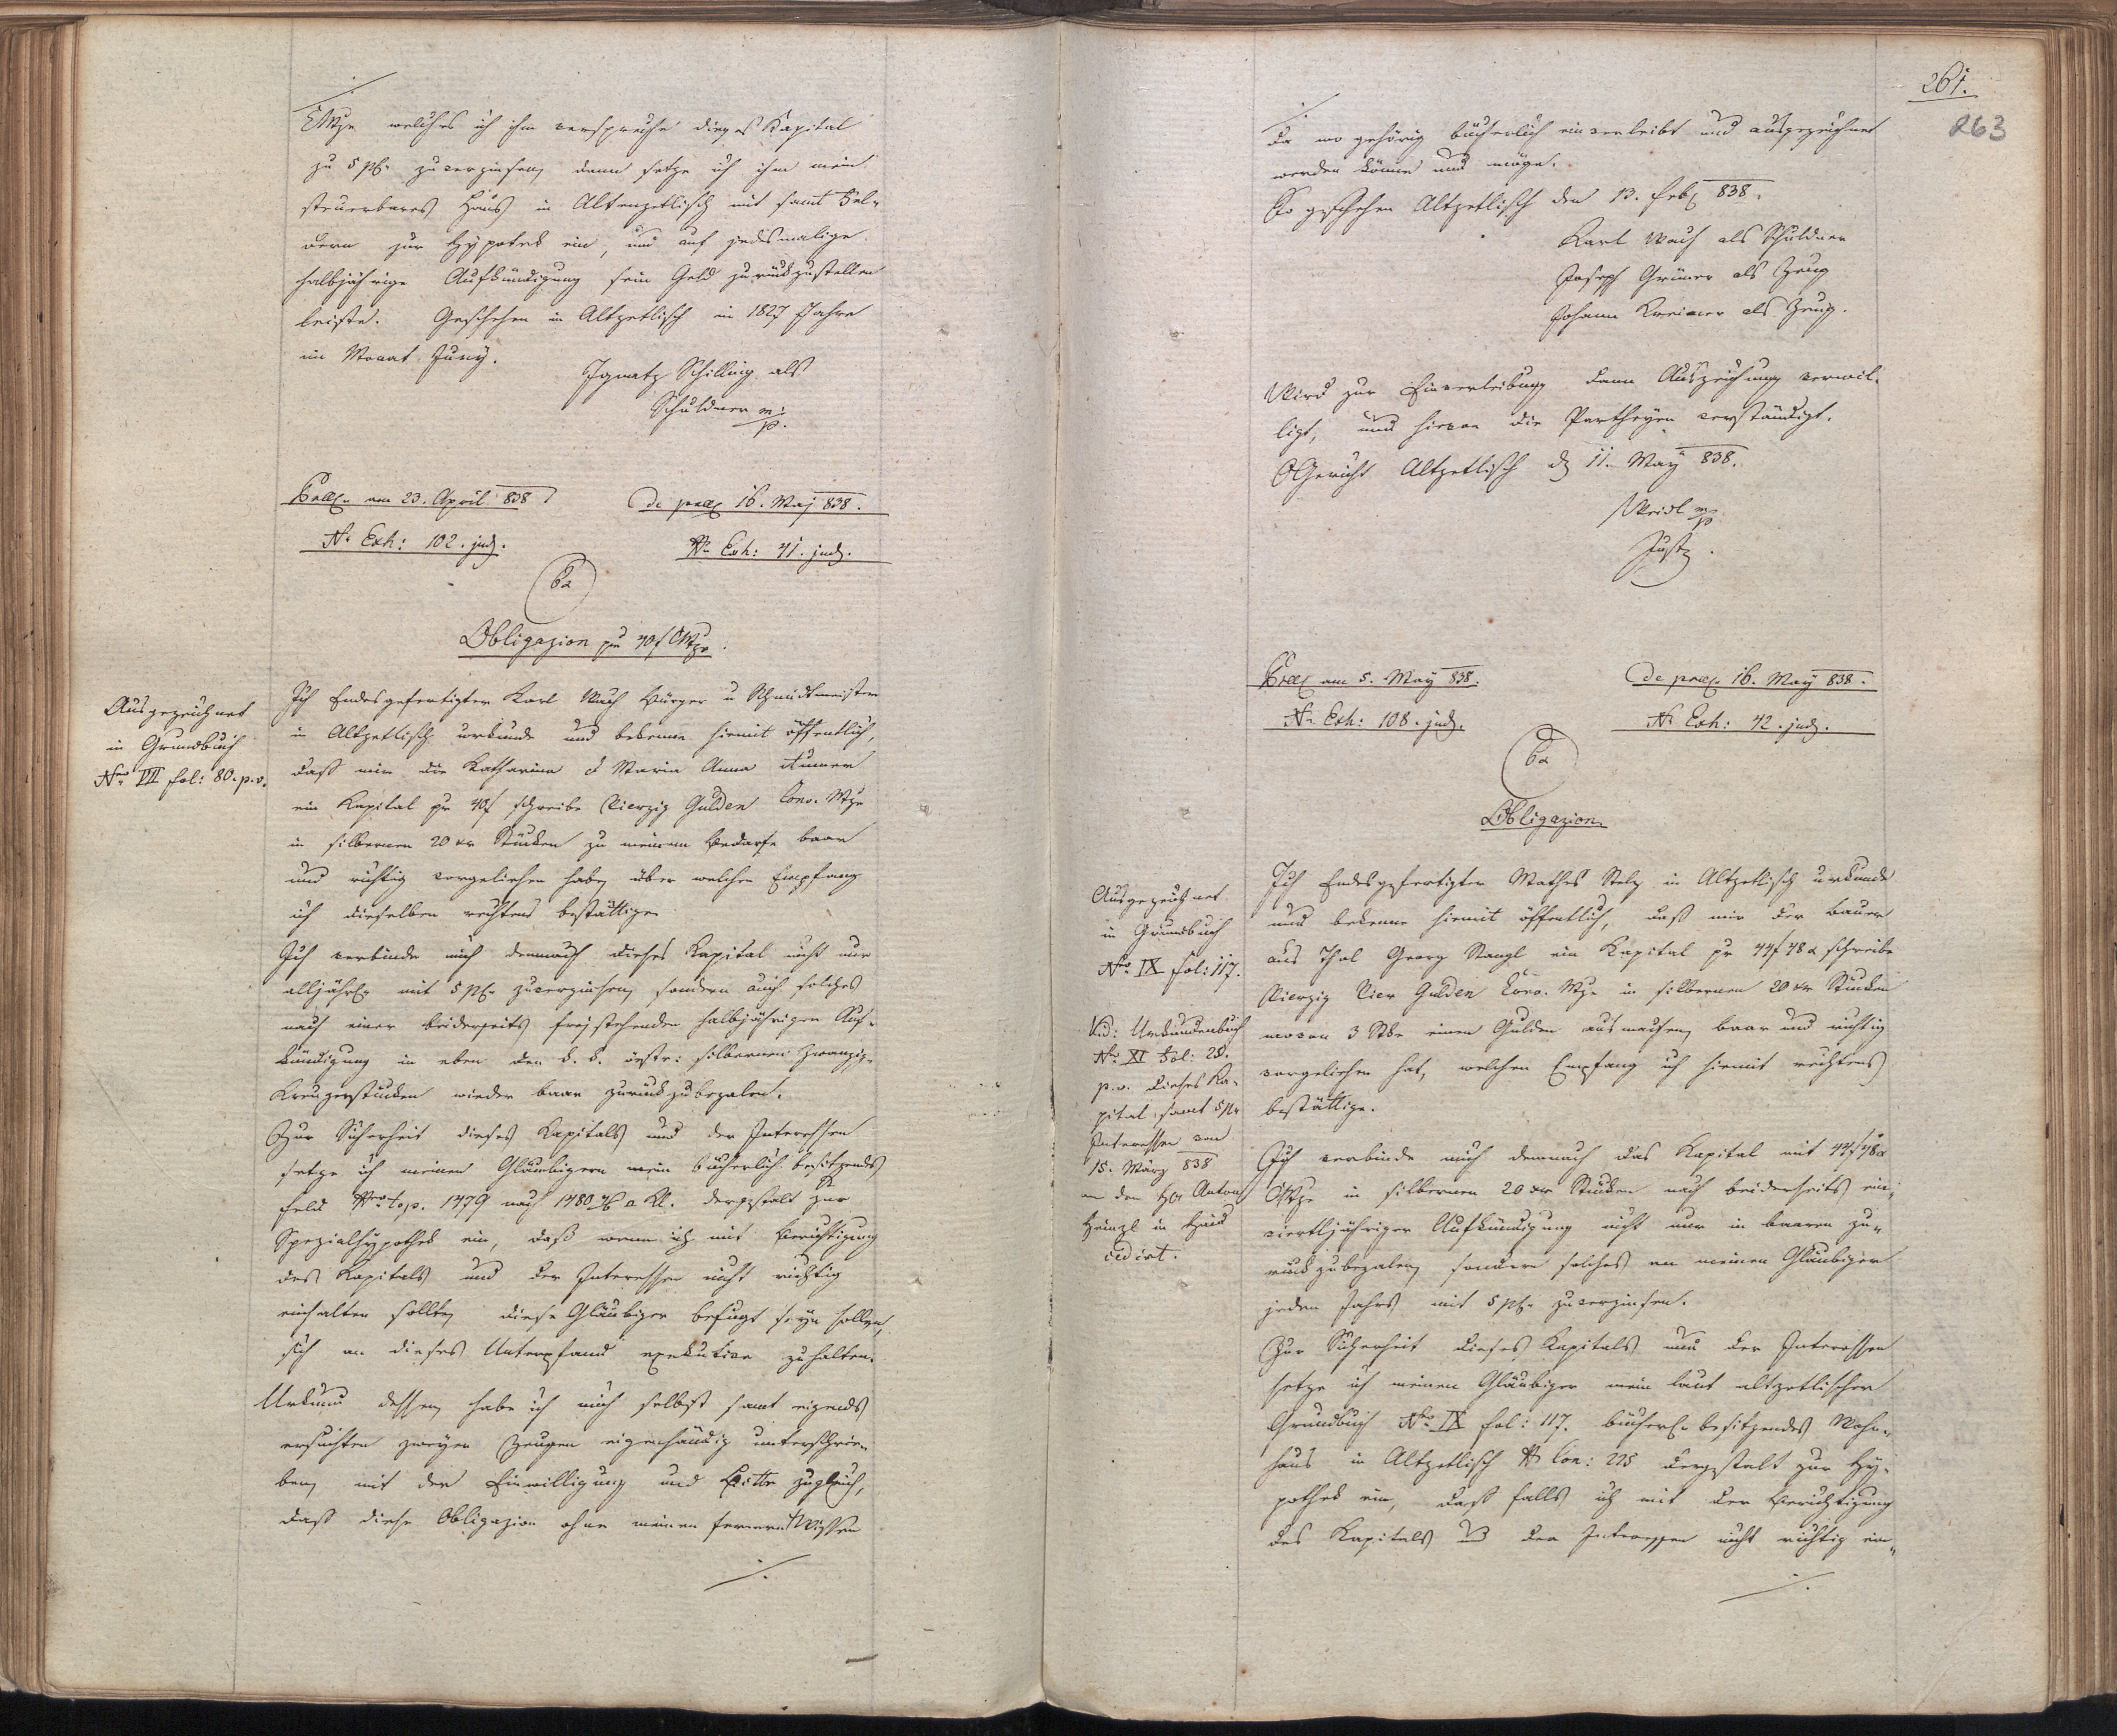 CMze welches ich ihm verspreche dieses Kapital
zu 5 pC zu verzinsen, dann setze ich ihm mein
steuerbares Haus in Altenzetlisch mit samt Fel-
dern zur Hypothek ein, und auf jedesmalige
halbjährige Aufkündigung sein Geld zurückzustellen
leiste. Geschehen in Altzetlisch in 1827 Jahre
im Monat Juny.
Ignatz Schilling als
Schuldner m:
p.
am 23. April 838
de 16. Maj 838.
N. Exh: 102. jud.
N. Exh: 41. jud.
Obligazion pr 40f CMze.
Ausgezeichnet
in Grundbuch
Nro VII fol: 80. p. v.
Ich Endesgefertigter Karl Wach Bürger u
in Altzetlisch urkunde und bekenne hiemit öffentlich,
daß mir die Katharina & Maria Anna
ein Kapital pr 40f schreibe Vierzig Gulden Conv. Mze
in silbernen 20 xr Stücken zu meinem Bedarfe baar
und richtig vorgeliehen haben, über welchen Empfang
ich dieselben rechtens bestättige.
Ich verbinde mich demnach dieses Kapital nicht nur
alljährl. mit 5 pC zu verzinsen, sondern auch solches
nach einer beiderseits freistehenden halbjährigen Auf-
kündigung in eben den k. k. östr: silbernen Zwanzig-
Kreuzerstücken wieder baar zurückzubezalen.
Zur Sicherheit dieses Kapitals und der Interessen
setze ich meinen Gläubigern mein bücherlich besitzendes
Feld Nro top. 1479 nach 1480 dergestalt zur
Spezialhypothek ein, daß wenn ich mit Berichtigung
des Kapitals und der Interessen nicht richtig
einhalten sollte, diese Gläubiger befugt seyn sollen,
sich an dieses Unterpfand exekutive zu halten.
Urkund dessen habe ich mich selbst samt eigends
ersuchten zweyen Zeugen eigenhändig unterschrie-
ben, mit der Einwilligung und Bitte zugleich,
daß diese Obligazion ohne meinen fernern Wissen
./.
261.
263
./.
da wo gehörig bücherlich einverleibt und ausgezeichnet
werden könne und möge.
So geschehen Altzetlisch den 13. Feb 838.
Karl Wach als Schuldner
Joseph Grüner als Zeug
Johann Kreimer als Zeug.
Wird zur Einverleibung dann Auszeichnung verwil-
ligt, und hievon die Partheyen verständigt.
OGericht Altzetlisch d 11. May 838.
Weidl m
p
Justz.
am 5. May 838.
de 16. May 838.
N. Exh: 108. jud.
N. Exh: 42. jud.
Obligazion
Ausgezeichnet
in Grundbuch
Nro IX fol: 117.
Vid: Urkundenbuch
Nr XI Fol: 28.
p. v. dieses Ka-
pital samt 5 pr
Interessen von
15. März 838
an den Hr Anton
Heinzl in Haid
cedirt.
Ich Endesgefertigter Mathes Stelz in Altzetlisch urkunde
und bekenne hiemit öffentlich, daß mir der Bauer
aus Thal Georg Stangl ein Kapital pr 44f 48x schreibe
Vierzig Vier Gulden Conv. Mze in silbernen 20 xr Stücken
wovon 3 Stke einen Gulden ausmachen, baar und richtig
vorgeliehen hat, welchen Empfang ich hiemit rechtens
bestättige.
Ich verbinde mich demnach das Kapital mit 44f 48x
CMze in silbernen 20 xr Stücken nach beiderseits ein-
viertljähriger Aufkündigung nicht nur in baaren zu-
rück zubezalen, sondern solches an meinen Gläubiger
jeden Jahrs mit 5 pC zu verzinsen.
Zur Sicherheit dieses Kapitals und der Interessen
setze ich meinem Gläubiger mein laut altzetlischer
Grundbuch Nro IX fol: 117. bücherl. besitzendes Wohn-
haus in Altzetlisch N Con: 225 dergestalt zur Hy-
pothek ein, daß falls ich mit der Berichtigung
des Kapitals u der Interessen nicht richtig ein-
./.